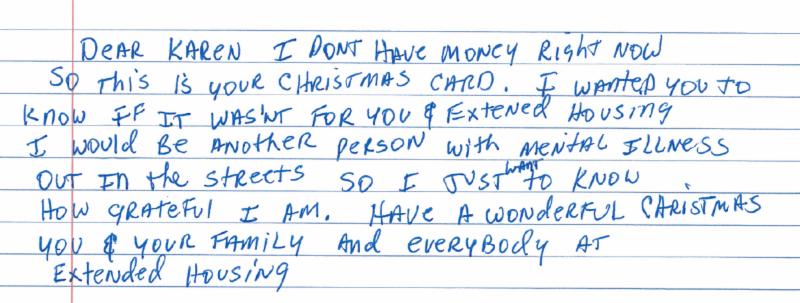 DEAR KAREN I DONT HAVE MONEY RIGHT NOW
SO THIS IS YOUR CHRISTMAS CARD. I WANTED YOU TO
KNOW IF IT WAS'NT FOR YOU & EXTENED HOUSING
I WOULD BE ANOTHER PERSON WITH MENTAL ILLNESS
OUT IN THE STREETS SO I JUST WANT TO KNOW
HOW GRATEFUL I AM. HAVE A WONDERFUL CHRISTMAS
YOU & YOUR FAMILY AND EVERYBODY AT
EXTENDED HOUSING